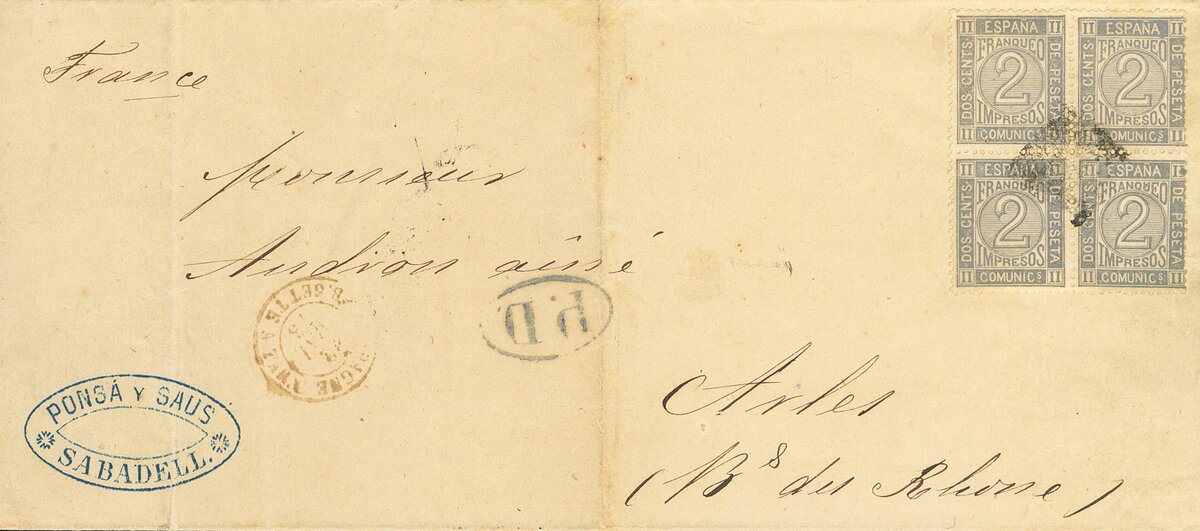 France
Monsieur
Audion aîné
Arles
(Bs du Rhone)
PONSÁ Y SAUS
SABADELL.
P.D.
ESPAÑA
FRANQUEO
2
IMPRESOS
COMUNICS
DOS CENTS
DE PESETA
II II
II II
ESPAÑA
FRANQUEO
2
IMPRESOS
COMUNICS
DOS CENTS
DE PESETA
II II
II II
ESPAÑA
FRANQUEO
2
IMPRESOS
COMUNICS
DOS CENTS
DE PESETA
II II
II II
ESPAÑA
FRANQUEO
2
IMPRESOS
COMUNICS
DOS CENTS
DE PESETA
II II
II II